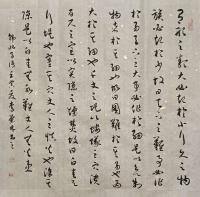 有形之類大必起於小行久之物
族必起於少故曰天下之難事必作
於易天下之大事必作於細是以欲制
物者於其細也故曰圖難於其易也為
大於其細也千丈之堤以螻蟻之穴潰
百尺之室以突隙之煙焚故曰白圭之
行堤也塞其穴丈人之慎火也塗其
隙是以白圭無水難丈人無火患